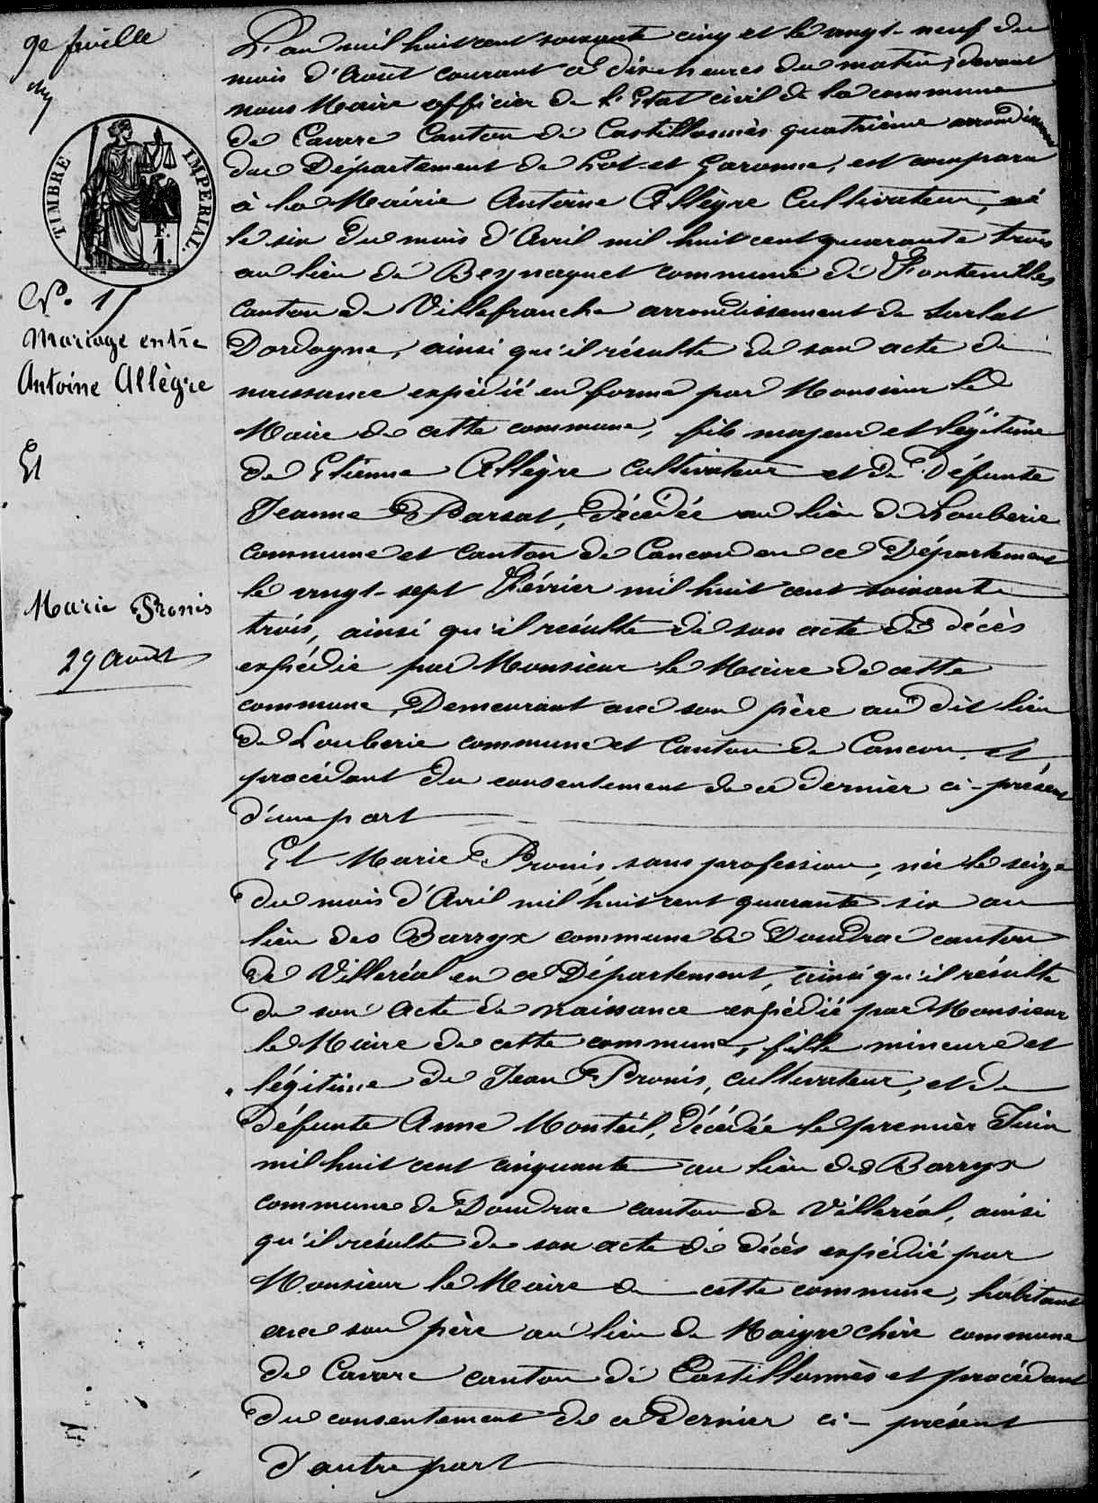 9e feuille
TIMBRE IMPERIAL.
F.
1.
N°. 15
Mariage entre
Antoine Allègre
Et
Marie Pronis
29 août
L'an mil huit cent soixante cinq et le vingt-neuf du
mois d'Août courant à dix heures du matin, devant
nous Maire officier de l'Etat civil de la commune
de Cavarc Canton de Castillonnès quatrième arrondissement
du Département de Lot-et Garonne, est comparu
à la Mairie Antoine Allègre Cultivateur, né
le six du mois d'Avril mil huit cent quarante trois
au lieu de Beynaguet commune de Fontenilles
canton de Villefranche arrondissement de Sarlat
Dordogne, ainsi qu'il résulte de son acte de
naissance expédié en forme par Monsieur le
Maire de cette commune, fils majeur et légitime
de Etienne Allègre cultivateur et de défunte
Jeanne Parsat, décédée au lieu de Louberie
commune et canton de Cancon en ce Département
le vingt-sept Février mil huit cent soixante
trois, ainsi qu'il résulte de son acte de décès
expédié par Monsieur le Maire de cette
commune, Demeurant avec son père au dit lieu
de Louberie commune et Canton de Cancon et
procédant du consentement de ce dernier ci-présent
d'une part
Et Marie Pronis, sans profession, née le seize
du mois d'Avril mil huit cent quarante six au
lieu des Barryx commune de Doudrac canton
de Villeréal en ce Département, ainsi qu'il résulte
de son acte de naissance expédié par Monsieur
le Maire de cette commune, fille mineure et
légitime de Jean Pronis, cultivateur, et de
défunte Anne Monteil, décédée le premier Juin
mil huit cent cinquante au lieu des Barryx
commune de Doudrac canton de Villeréal, ainsi
qu'il résulte de son acte de décès expédié par
Monsieur le Maire de cette commune, habitant
avec son père au lieu de Maigre chère commune
de Cavarc canton de Castillonnès et procédant
du consentement de ce dernier ci-présent
d'autre part